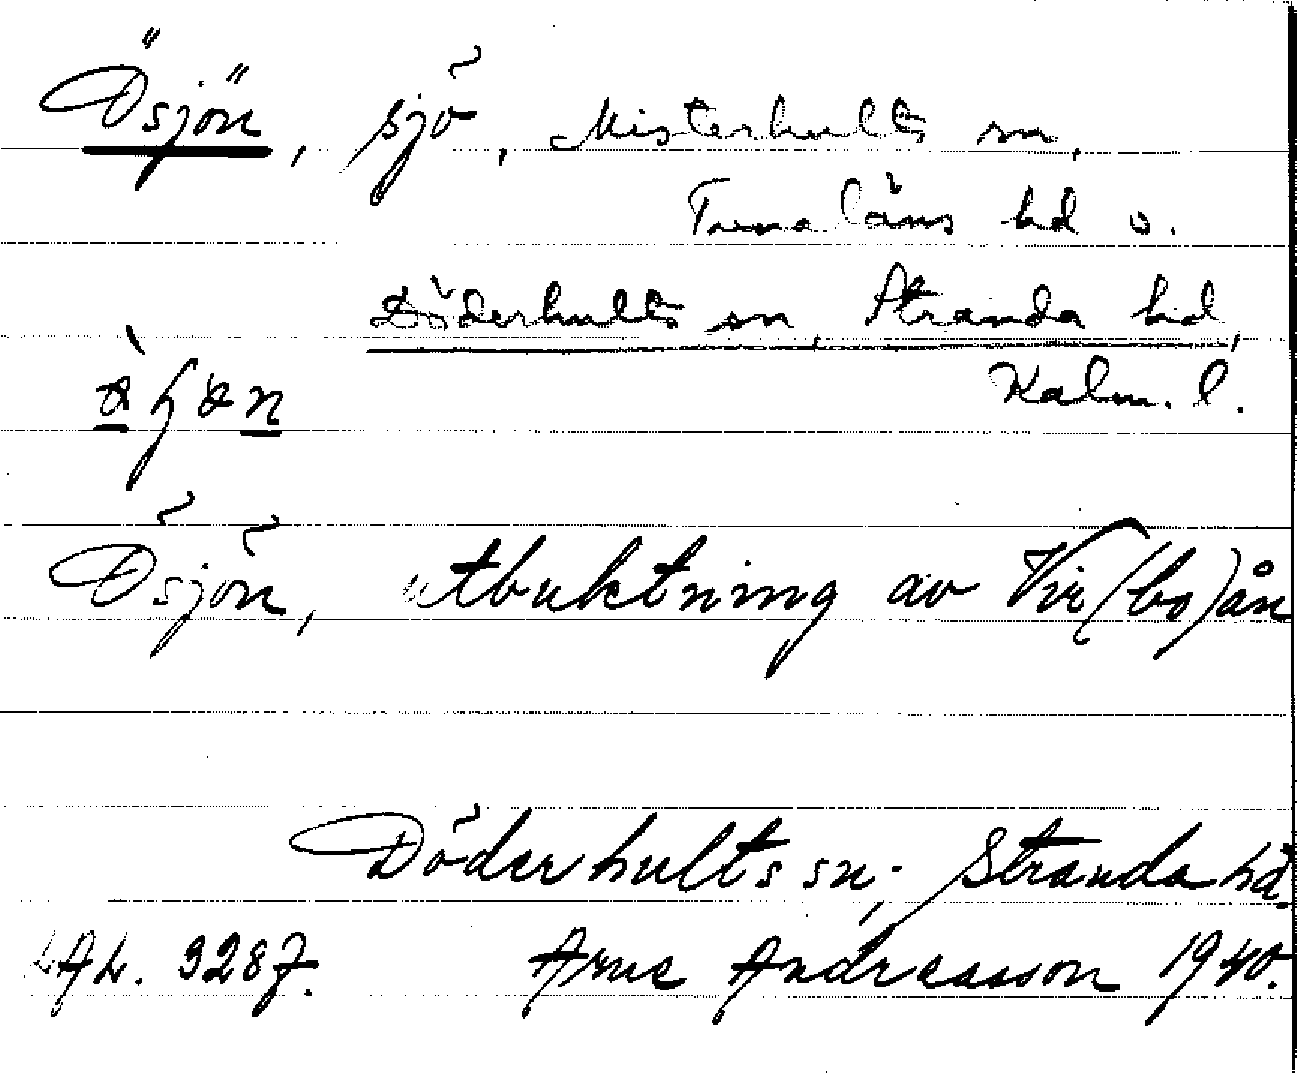 Ösjön, sjö, Misterhults sn,
Tunaläns hd o.
Döderhults sn, Stranda hd,
Kalm. l.
Ösjön, utbuktning av Vir(bo)ån
Döderhults sn; Stranda hd.
Arne Andreasson 1940.